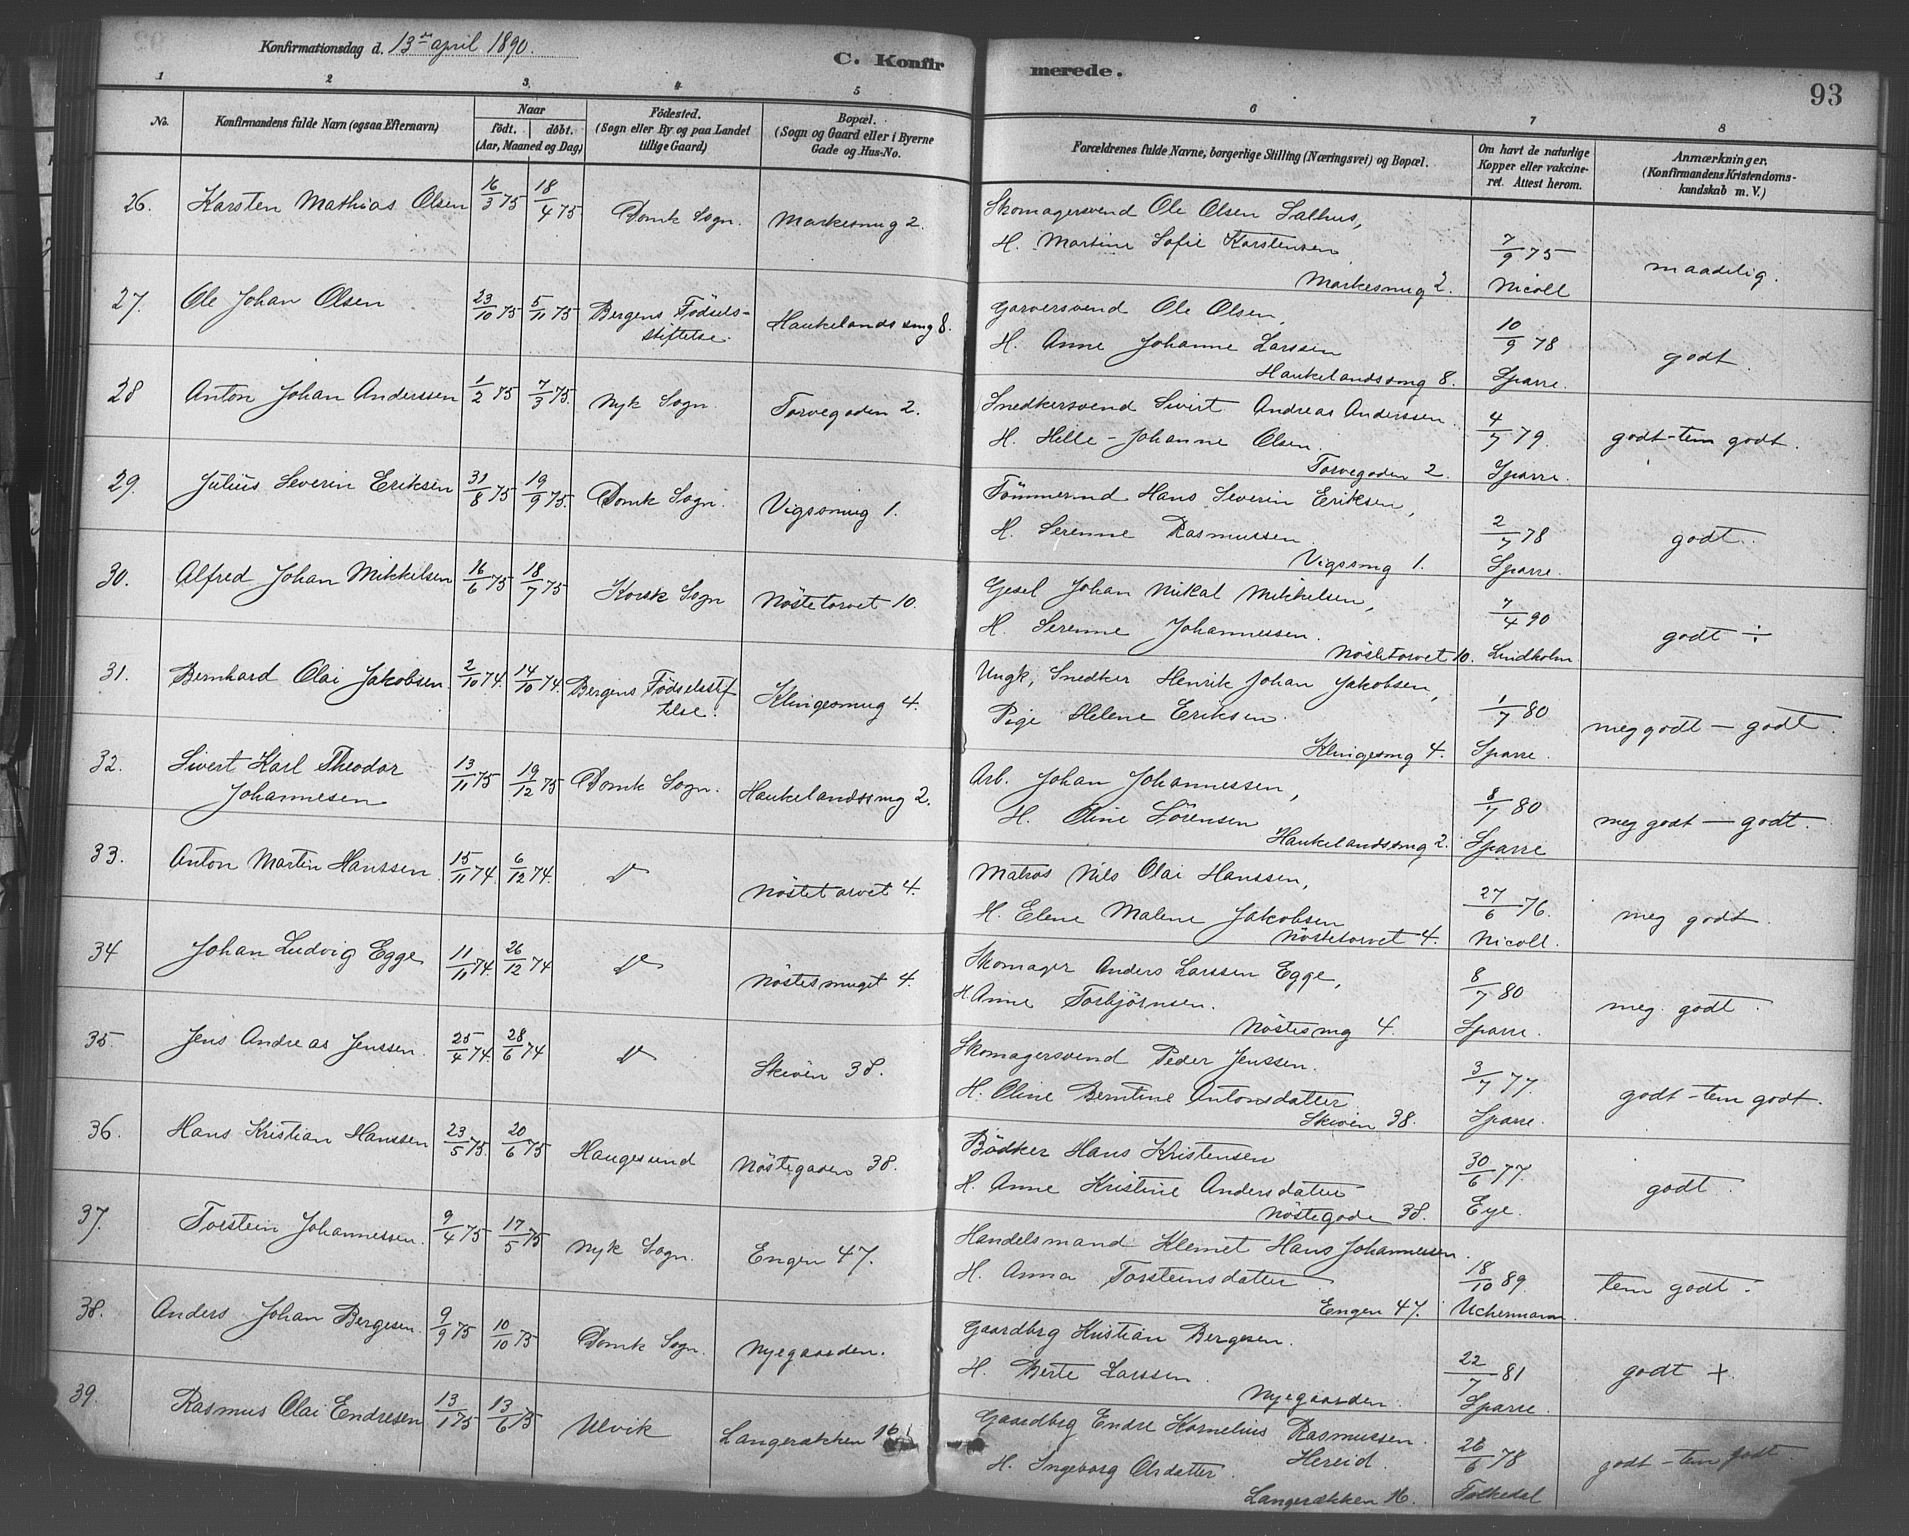 Konfirmationsdag d. 13de april 1890.
C. Konfirmerede.
93
1 2 3 4 5 6 7 8
No.
Konfirmandens fulde Navn (ogsaa Efternavn)
Naar
födt. | döbt.
(Aar, Maaned og Dag)
Födested.
(Sogn eller By og paa Landet
tillige Gaard)
Bopæl.
(Sogn og Gaard eller i Byerne
Gade og Hus-No.
Forældrenes fulde Navne, borgerlige Stilling (Næringsvei) og Bopæl.
Om havt de naturlige
Kopper eller vakcine-
ret. Attest herom.
Anmærkninger.
(Konfirmandens Kristendoms-
kundskab m. V.)
26. Karsten Mathias Olsen 16/3 75 18/4 75 Domk Sogn. Markesmug 2. Skomagersvend Ole Olsen Salhus,
H. Martine Sofie Karstensen
Markesmug 2. 7/9 75 Nicoll maadelig.
27. Ole Johan Olsen 23/10 75 5/11 75 Bergens Födsels-
stiftelse. Haukelandssmug 8. Garversvend Ole Olsen,
H. Anne Johanne Larssen
Haukelandssmug 8. 10/9 78 Sparre. godt.
28 Anton Johan Anderssen 1/2 75 7/3 75. Nyk Sogn. Torvegaden 2. Snedkersvend Sivert Andreas Anderssen
H. Hille-Johanne Olsen.
Torvegaden 2. 4/7 79. Sparre. godt-tem godt.
29. Julius Severin Eriksen 31/8 75 19/9 75. Domk Sogn. Vigssmug 1. Tömmermd Hans Severin Eriksen,
H. Serenne Rasmussen
Vigssmug 1. 2/7 78 Sparre. godt.
30. Alfred Johan Mikkelsen 16/6 75 18/7 75 Korsk Sogn Nöstetorvet 10. Gesel Johan Nikal Mikkelsen,
H. Serenne Johannessen.
Nöstetorvet 10. 7/4 90 Lindholm godt ÷
31. Bernhard Olai Jakobsen 2/10 74. 14/10 74. Bergens Födselsstif
telse. Klingesmug 4. Ungk, Snedker Henrik Johan Jakobsen,
Pige Helene Eriksen.
Klingesmg 4. 1/7 80 Sparre. meg godt — godt.
32. Sivert Karl Theodor
Johannesen 13/11 75 19/12 75 Domk Sogn. Haukelandssmug 2. Arb. Johan Johannessen,
H. Oline Sörensen
Haukelandssmug 2. 8/7 80 Sparre meg godt — godt.
33. Anton Martin Hanssen 15/11 74. 6/12 74. Nöstetorvet 4. Matros Nils Olai Hanssen,
H. Elene Malene Jakobsen
Nöstetorvet 4. 27/6 76. Nicoll. meg godt.
34 Johan Ludvig Egge 11/11 74. 26/12 74 Nöstesmuget 4. Skomager Anders Larssen Egge,
H. Anne Torbjörnsen.
Nöstesmg 4. 8/7 80 Sparre. meg. godt.
35. Jens Andreas Jenssen. 25/4 74. 28/6 74 Skiven 38. Skomagersvend Peder Jenssen.
H. Oline Berntine Antonsdatter
Skiven 38. 3/7 77. Sparre. godt-tem godt.
36. Hans Kristian Hanssen 23/5 75. 20/6 75 Haugesund Nöstegaden 38. Bödker Hans Kristensen
H. Anne Kristine Andersdatter
Nöstegade 38. 30/6 77. Eye. godt.
37. Torstein Johannessen. 9/4 75 17/5 75 Nyk Sogn. Engen 47. Handelsmand Klemet Hans Johannessen.
H. Anna Torsteinsdatter
Engen 47. 18/10 89 Uchermann tem godt.
38. Anders Johan Bergesen. 9/9 75 10/10 75 Domk Sogn. Nyegaarden. Gaardbrg Kristian Bergesen.
H. Berte Larssen.
Nyegaarden. 22/7 81 Sparre. godt +.
39. Rasmus Olai Endresen 13/1 75 13/6 75 Ulvik Langerækken 16. Gaardbrg Endre Kornelius Rasmussen
Hereid.
H. Ingeborg Olsdatter.
Langerækken 16. 26/6 78 Folkedal godt-tem godt